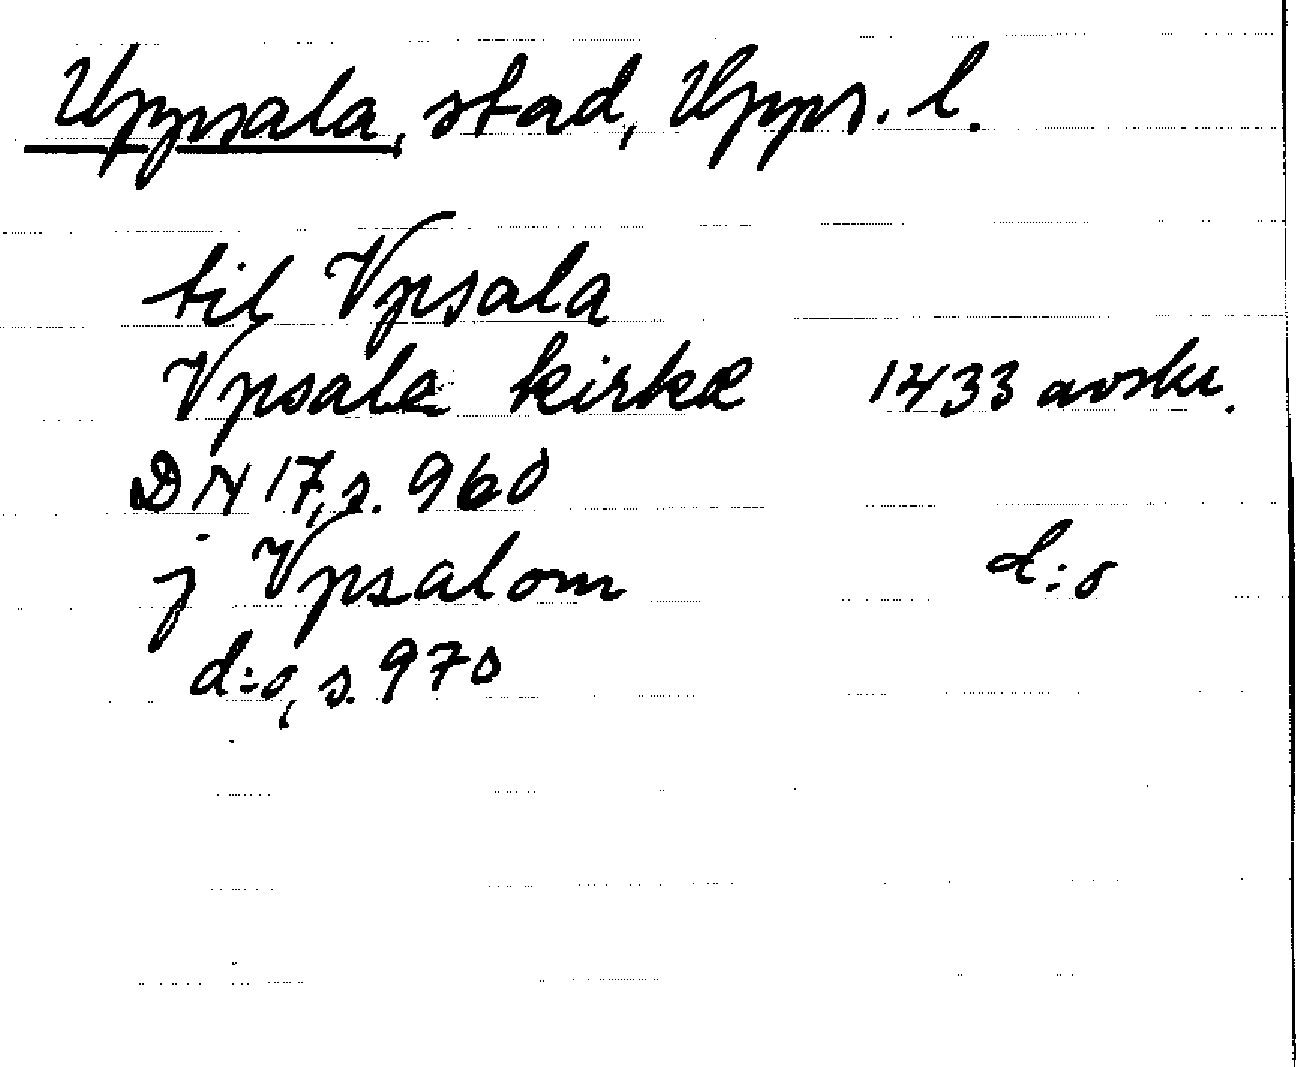 Uppsala, stad, Upps. l.
til Vpsala
Vpsale kirkæ 1433 avskr.
DN 17, s. 960
j Vpsalom d:o
d:o, s. 970